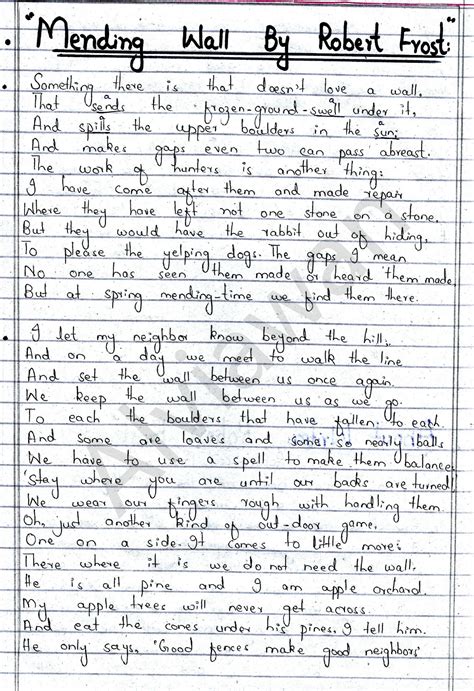 "Mending Wall By Robert Frost:"
Something there is that doesn't love a wall,
That sends the frozen-ground-swell under it,
And spills the upper boulders in the sun;
And makes gaps even two can pass abreast.
The work of hunters is another thing:
I have come after them and made repair
Where they have left not one stone on a stone,
But they would have the rabbit out of hiding,
To please the yelping dogs. The gaps I mean
No one has seen them made or heard them made,
But at spring mending-time we find them there.
I let my neighbor know beyond the hill;
And on a day we meet to walk the line
And set the wall between us once again.
We keep the wall between us as we go.
To each the boulders that have fallen to each.
And some are loaves and some so nearly balls
We have to use a spell to make them balance
'Stay where you are until our backs are turned!
We wear our fingers rough with handling them.
Oh, just another kind of out-door game,
One on a side. It comes to little more:
There where it is we do not need the wall.
He is all pine and I am apple orchard.
My apple trees will never get across.
And eat the cones under his pines, I tell him.
He only says, 'Good fences make good neighbors'